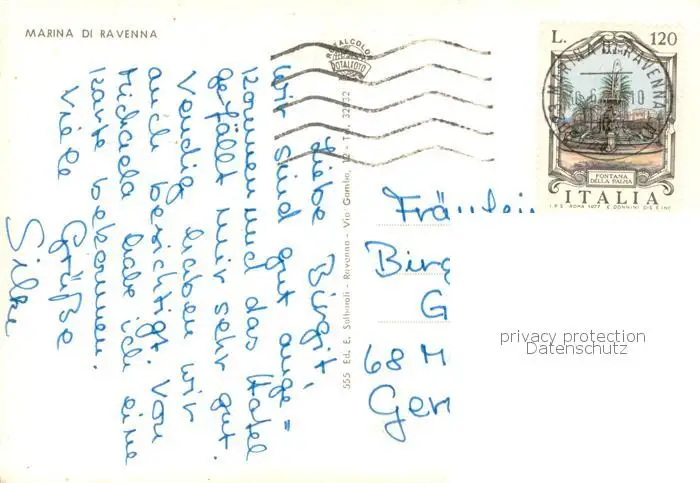 MARINA DI RAVENNA
ROTALCOLOR
ROTALFOTO
L. 120
MARINA DI RAVENNA
10
FONTANA
DELLA PALMA
ITALIA
I.P.S. ROMA 1977 E. DONNINI DIS. E INC.
Liebe Birgit,
wir sind gut ange=
kommen und das Hotel
gefällt mir sehr gut.
Vendig haben wir
auch besichtigt. Von
Michaela habe ich eine
Karte bekommen.
Viele Grüße
Silke
555 Ed. E. Salbaroli - Ravenna - Via Gamba, 12 - Tel. 32032
Fräulein
Birg
G
68 M
Ger
privacy protection
Datenschutz